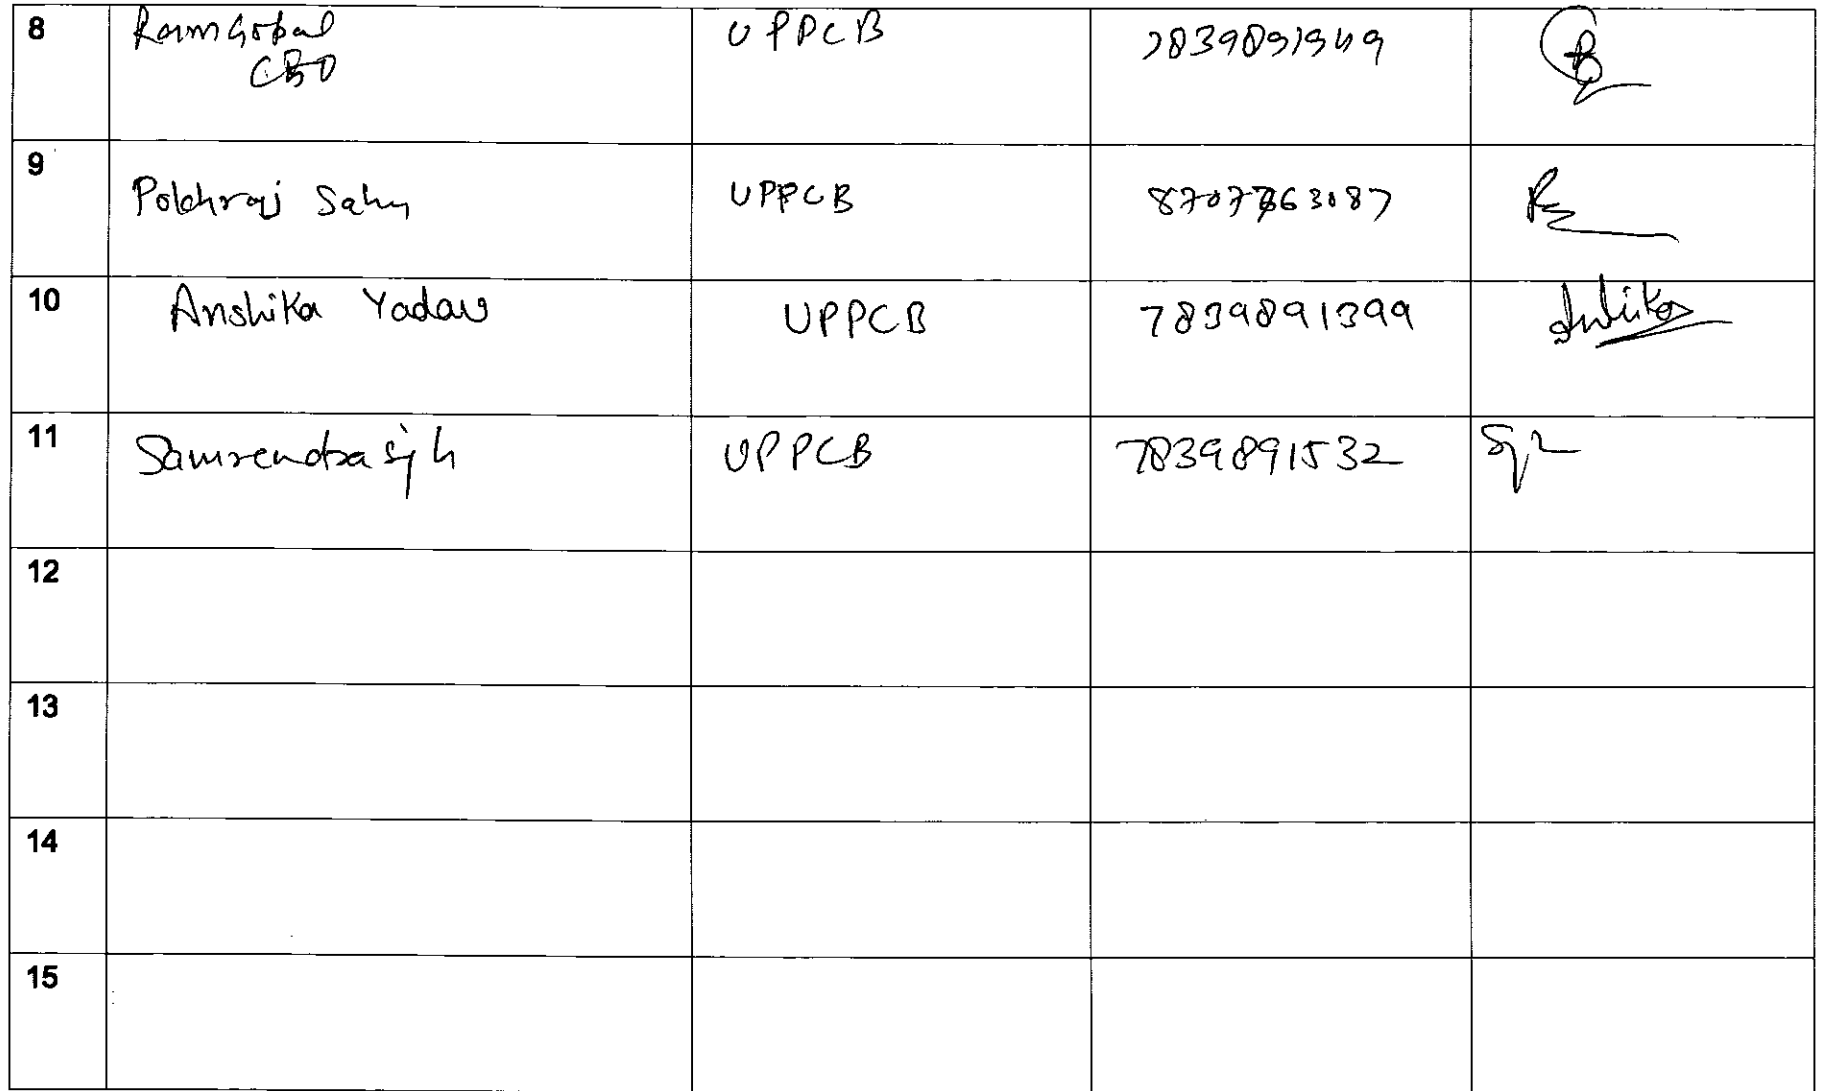 8 RamGopal UPPCB 7839891949
CBO
9 Pokhraj Sahu UPPCB
10 Anshika Yadav UPPCB 7839891399 Anshika
11 Samrendra UPPCB 7839891532
12
13
14
15